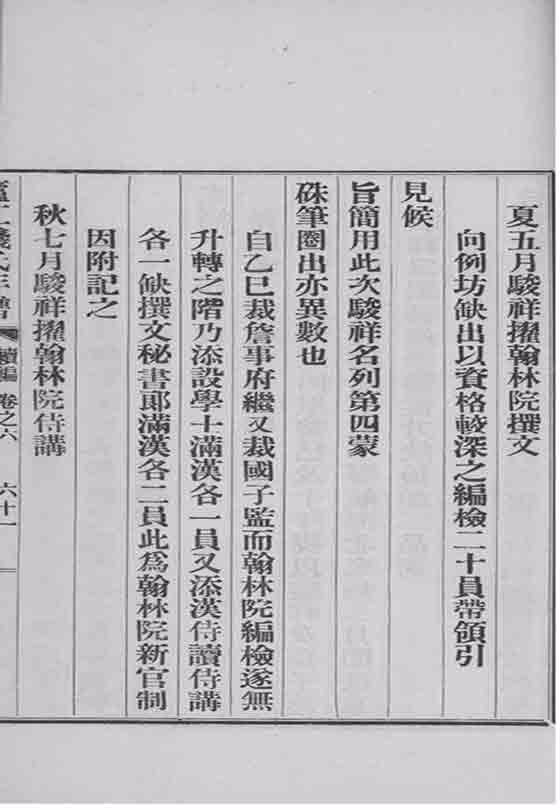 夏五月駿祥擢翰林院撰文
向例坊缺出以資格較深之編檢二十員帶領引
見候
旨簡用此次駿祥名列第四蒙
硃筆圈出亦異數也
自乙巳裁詹事府繼又裁國子監而翰林院編檢遂無
升轉之階乃添設學士滿漢各一員又添漢侍讀侍講
各一缺撰文秘書郎滿漢各二員此爲翰林院新官制
因附記之
秋七月駿祥擢翰林院侍講
氏年譜 續編 卷之六 六十一